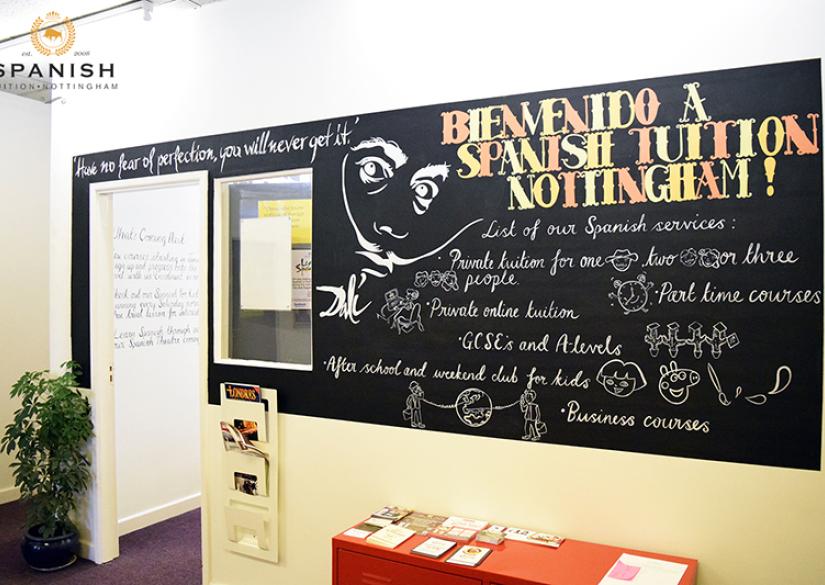 est. 2008
SPANISH
TUITION•NOTTINGHAM
'Have no fear of perfection, you will never get it.'
BIENVENIDO A
SPANISH TUITION
NOTTINGHAM!
List of our Spanish services:
• Private tuition for one two or three
people.
• Part time courses
• Private online tuition
• GCSE's and A-levels
• After school and weekend club for kids
• Business courses
Dali
What's Coming Next
Learn Spanish through
our Spanish Theatre
LONDRES